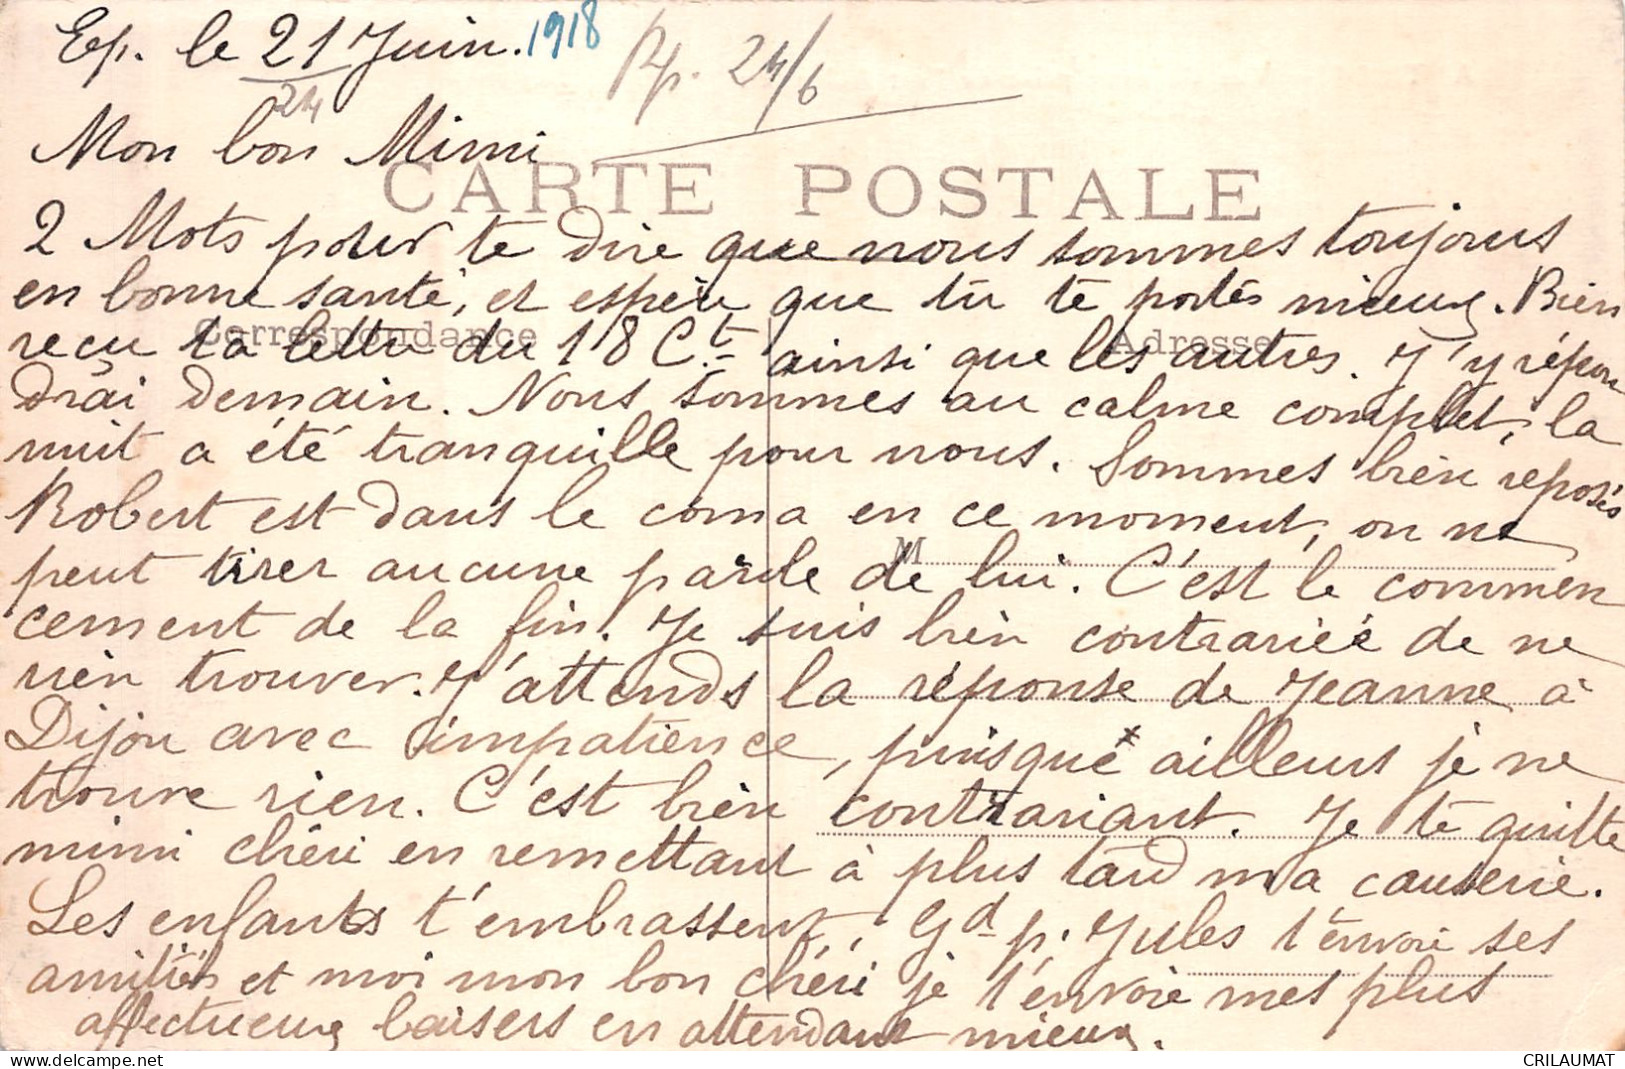 Ep. le 21 Juin. 1918 Rp. 24/6
24
Mon bon Mimi
CARTE POSTALE
2 Mots pour te dire que nous sommes toujours
en bonne santé, et espère que tu te portes mieux. Bien
Correspondance Adresse
reçu ta lettre du 18 Ct ainsi que les autres. J'y répon
drai demain. Nous sommes au calme complet, la
nuit a été tranquille pour nous. Sommes bien reposés
Robert est dans le coma en ce moment, on ne
M
peut tirer aucune parole de lui. C'est le commen
cement de la fin. Je suis bien contrariée de ne
rien trouver. J'attends la réponse de Jeanne à
Dijon avec impatience, puisque ailleurs je ne
trouve rien. C'est bien contrariant. Je te quitte
mimi chéri en remettant à plus tard ma causerie.
Les enfants t'embrassent, Gd p. Jules t'envoie ses
amitiés et moi mon bon chéri je t'envoie mes plus
affectueux baisers en attendant mieux.
delcampe.net
CRILAUMAT